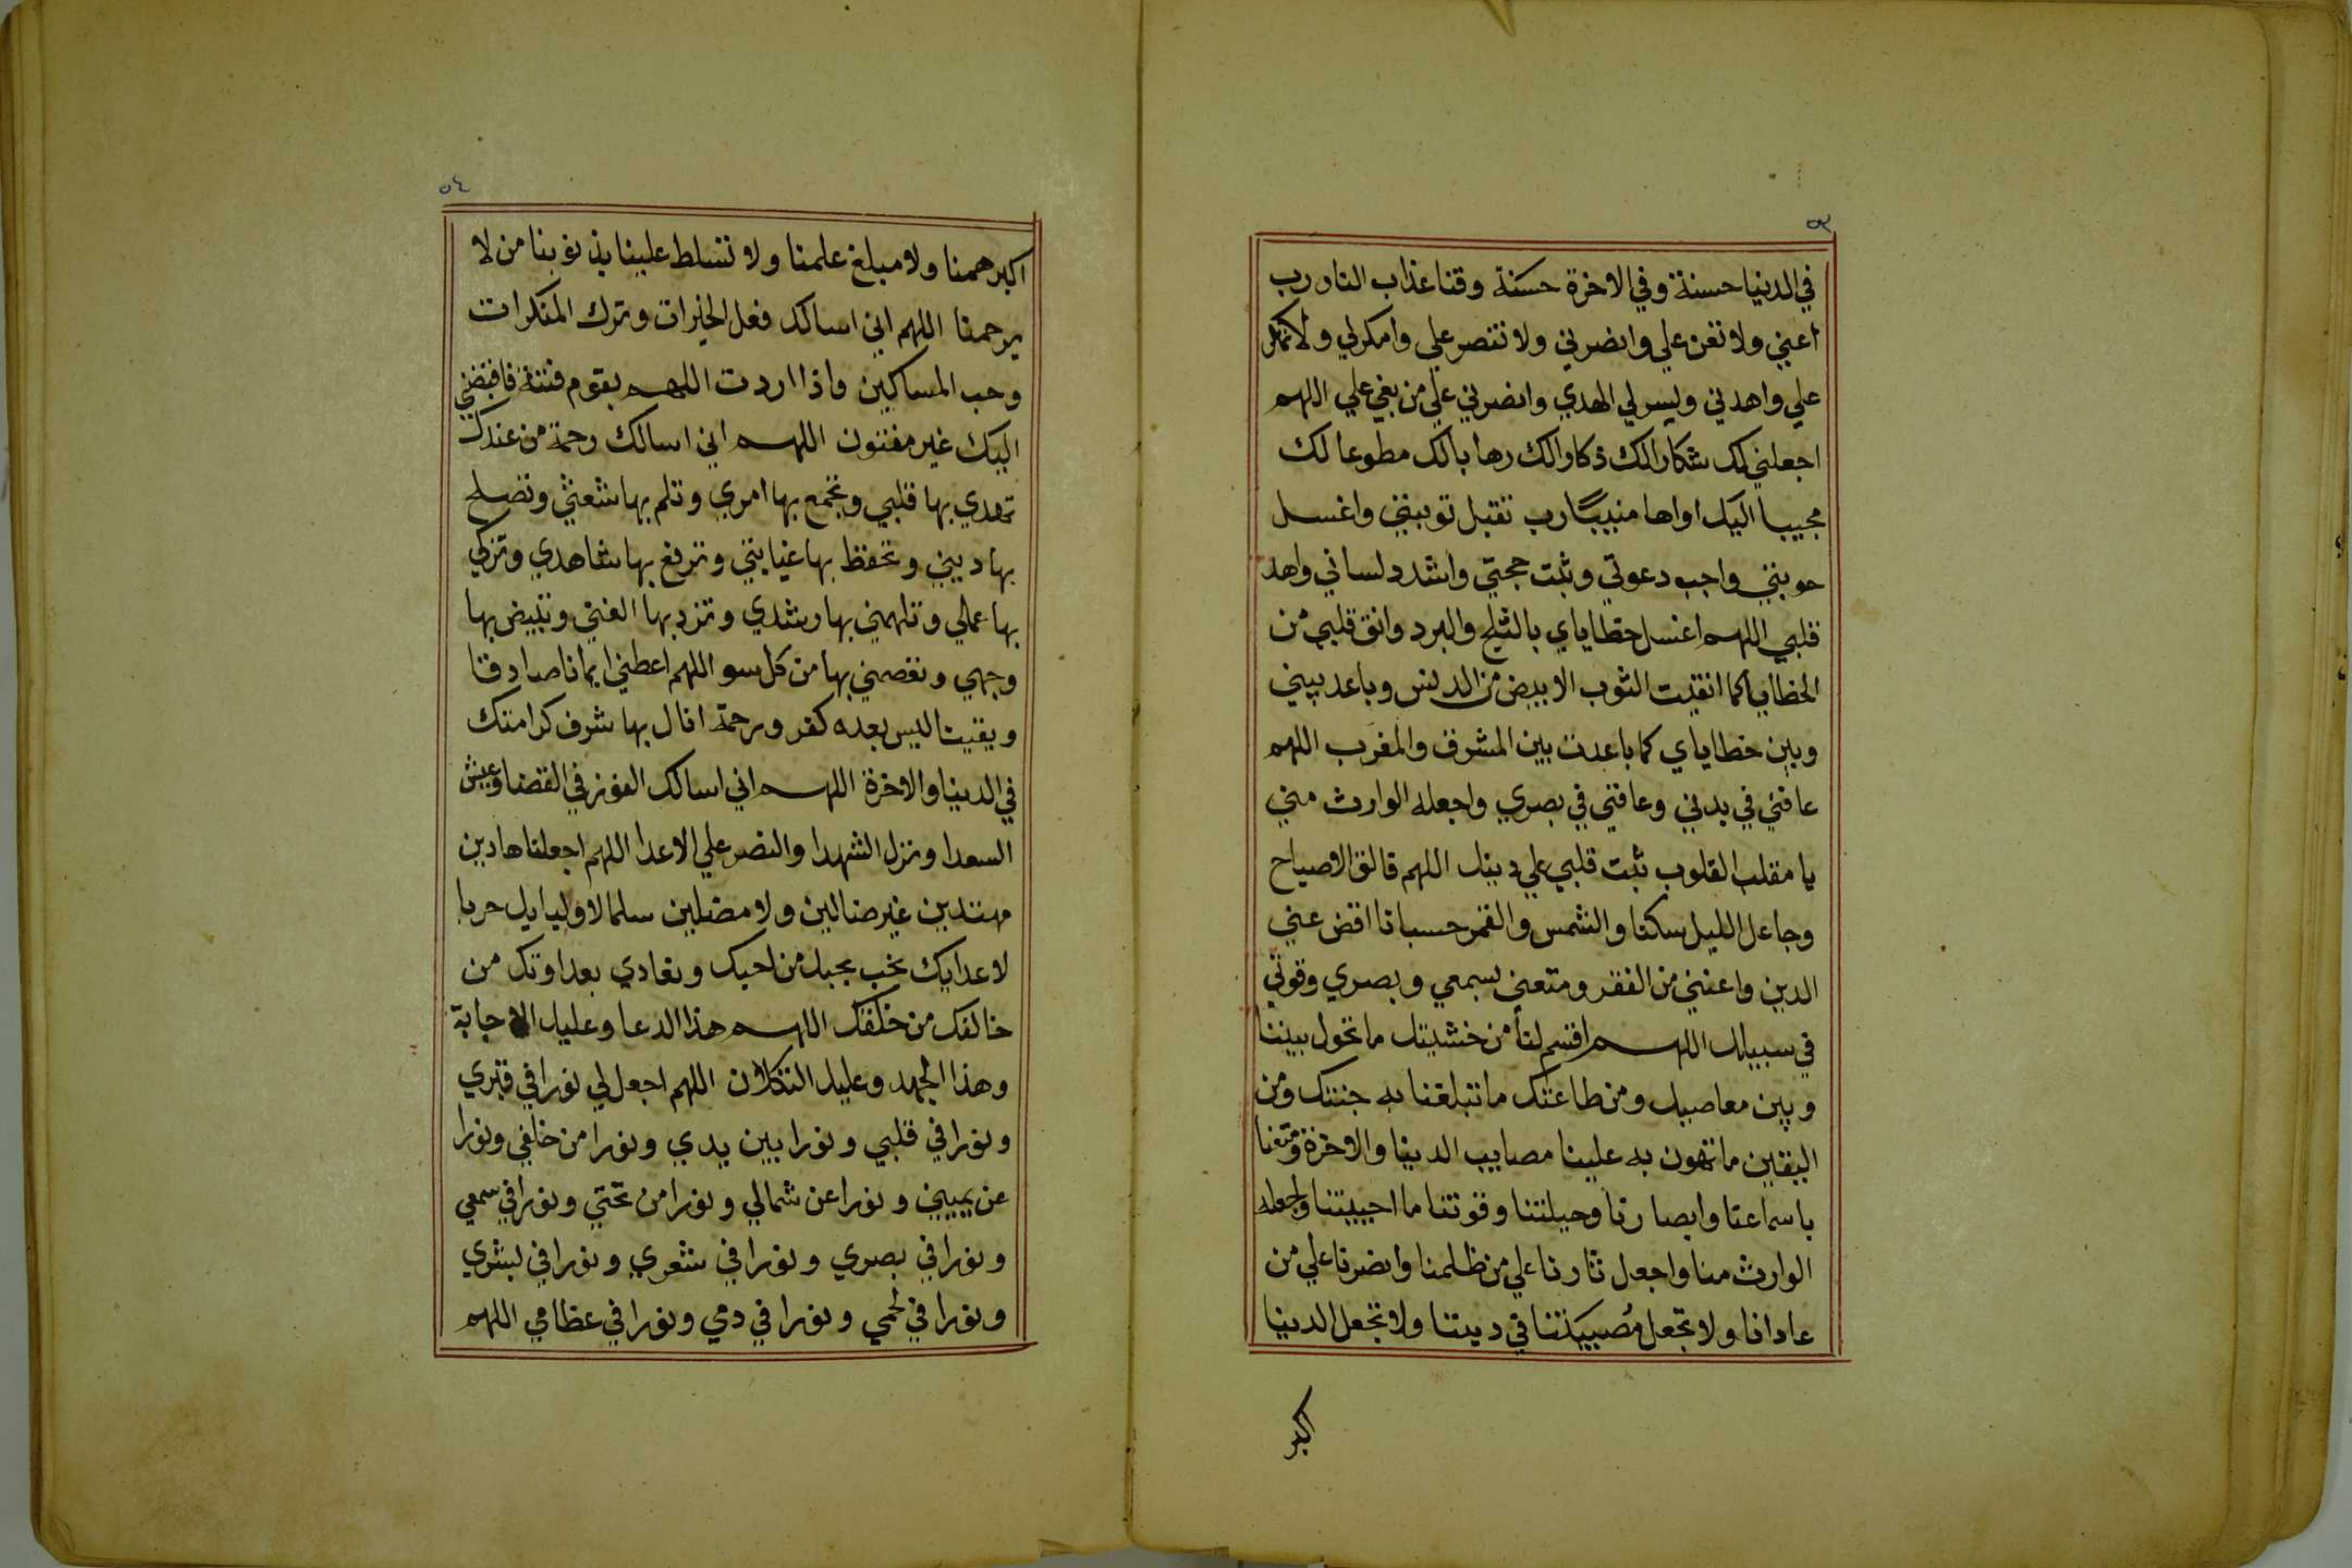 في الدنيا حسنة وفي الاخرة حسنة وقنا عذاب النار رب
اعني ولا تعن علي وانصرني ولا تنصر علي وامكر لي ولا تمكر
علي واهدني ويسر لي الهدي وانصرني علي من بغي علي اللهم
اجعلني لك شكارا لك ذكارا لك رهابا لك مطوعا لك
مجيبا اليك اواها منيبا رب تقبل توبتي واغسل
حوبتي واجب دعوتي وثبت حجتي واشدد لساني واهد
قلبي اللهم اغسل خطاياي بالثلج والبرد وانق قلبي من
الخطايا كما انقيت الثوب الابيض من الدنس وباعد بيني
وبين خطاياي كما باعدت بين المشرق والمغرب اللهم
عافني في بدني وعافني في بصري واجعله الوارث مني
يا مقلب القلوب ثبت قلبي علي دينك اللهم فالق الاصباح
وجاعل الليل سكنا والشمس والقمر حسبانا اقض عني
الدين واغنني من الفقر ومتعني بسمعي وبصري وقوتي
في سبيلك اللهم اقسم لنا من خشيتك ما تحول بيننا
وبين معاصيك ومن طاعتك ما تبلغنا به جنتك ومن
اليقين ما تهون به علينا مصايب الدنيا والاخرة ومتعنا
باسماعنا وابصارنا وحيلتنا وقوتنا ما احييتنا واجعله
الوارث منا واجعل ثارنا علي من ظلمنا وانصرنا علي من
عادانا ولا تجعل مصيبتنا في ديننا ولا تجعل الدنيا
اكبر
٥٤
اكبر همنا ولا مبلغ علمنا ولا تسلط علينا بذنوبنا من لا
يرحمنا اللهم اني اسالك فعل الخيرات وترك المنكرات
وحب المساكين واذا اردت اللهم بقوم فتنة فاقبضني
اليك غير مفتون اللهم اني اسالك رحمة من عندك
تهدي بها قلبي وتجمع بها امري وتلم بها شعثي وتصلح
بها ديني وتحفظ بها غيابتي وترفع بها شاهدي وتزكي
بها عملي وتلهمني بها رشدي وتزد بها الفتي وتبيض بها
وجهي وتعصمني بها من كل سو اللهم اعطني ايمانا صادقا
ويقينا ليس بعده كفر ورحمة انال بها شرف كرامتك
في الدنيا والاخرة اللهم اني اسالك الفوز في القضا وعيش
السعدا ونزل الشهدا والنصر علي الاعدا اللهم اجعلنا هادين
مهتدين غير ضالين ولا مضلين سلما لاوليايك حربا
لاعدايك نحب بحبك من احبك ونعادي بعداوتك من
خالفك من خلقك اللهم هذا الدعا وعليك الاجابة
وهذا الجهد وعليك التكلان اللهم اجعل لي نورا في قبري
ونورا في قلبي ونورا بين يدي ونورا من خلفي ونورا
عن يميني ونورا عن شمالي ونورا من تحتي ونورا في سمعي
ونورا في بصري ونورا في شعري ونورا في بشري
ونورا في لحمي ونورا في دمي ونورا في عظامي اللهم